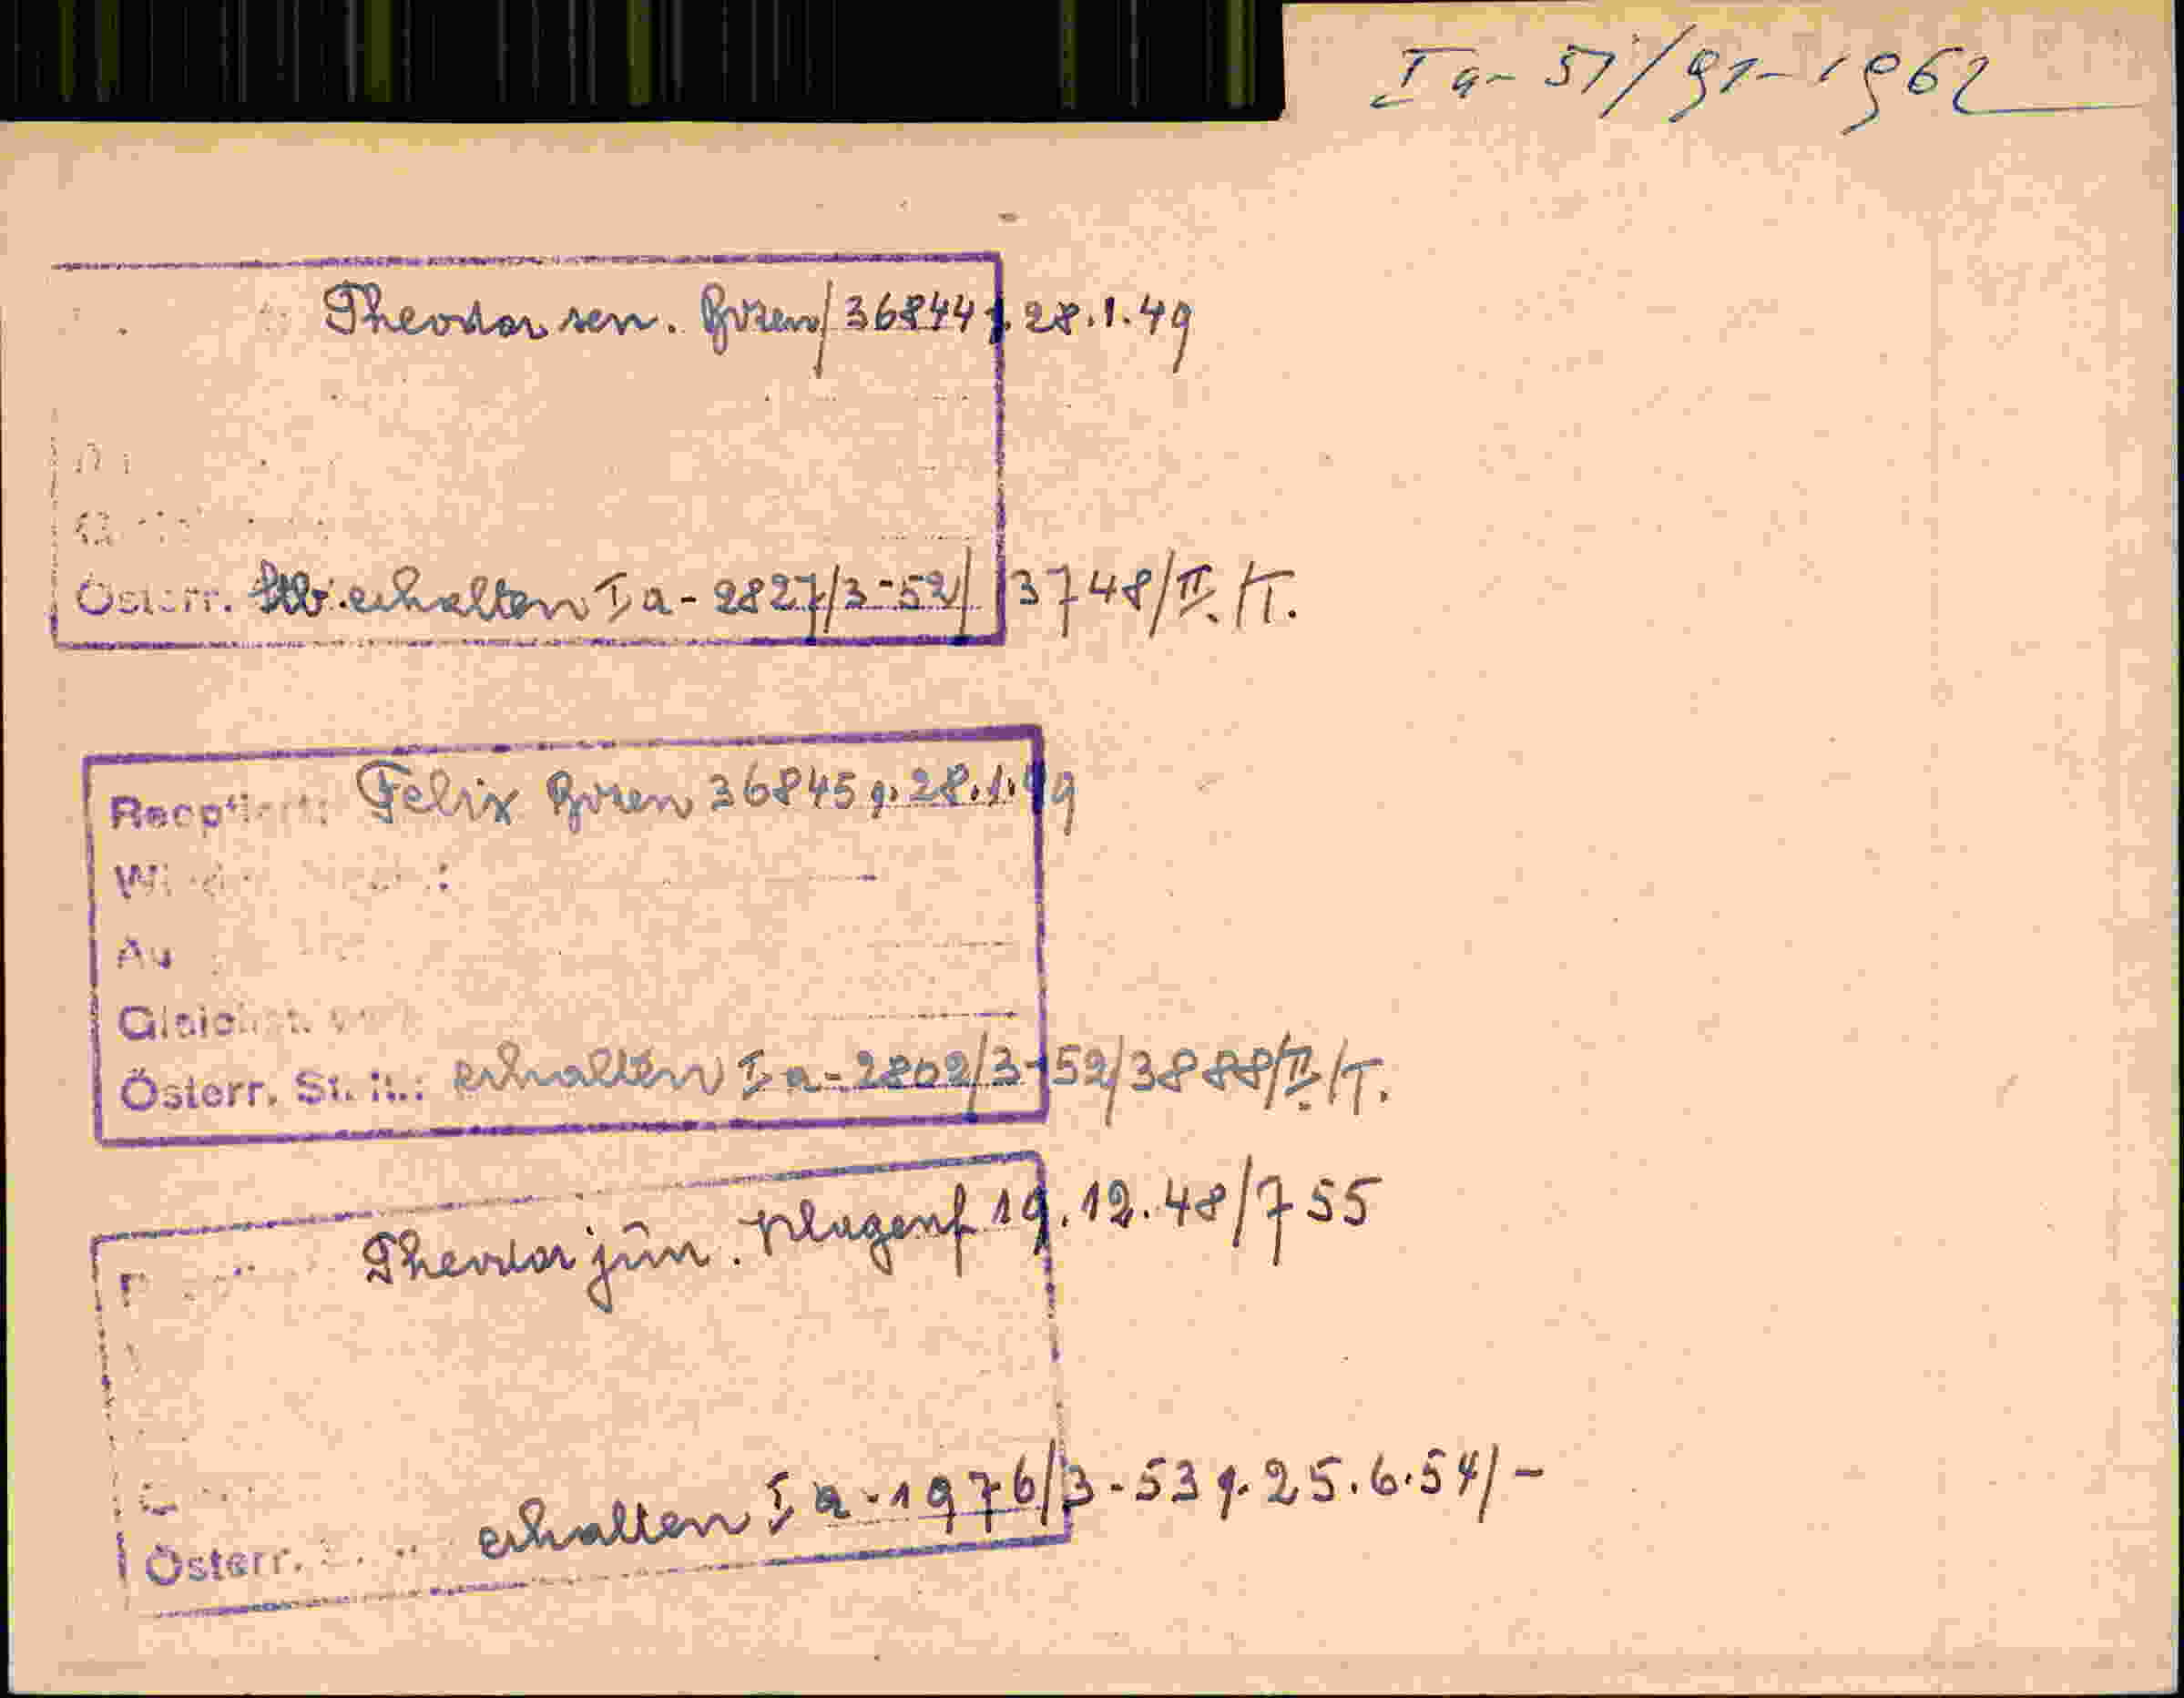 Ia - 51/91 - 1962
Theodor sen. Bozen/36844 v. 28.1.49
Österr. Stb. erhalten Ia - 2827/3-52/3748/II./T.
Reoptiert: Felix Bozen 36845 v. 28.1.49
Au
Gleichst.
Österr. St. B.: erhalten Ia - 2802/3-52/3888/II./T.
Theodor jun. Klagenf 19.12.48/755
Österr. erhalten Ia - 1976/3-53 v. 25.6.54/-